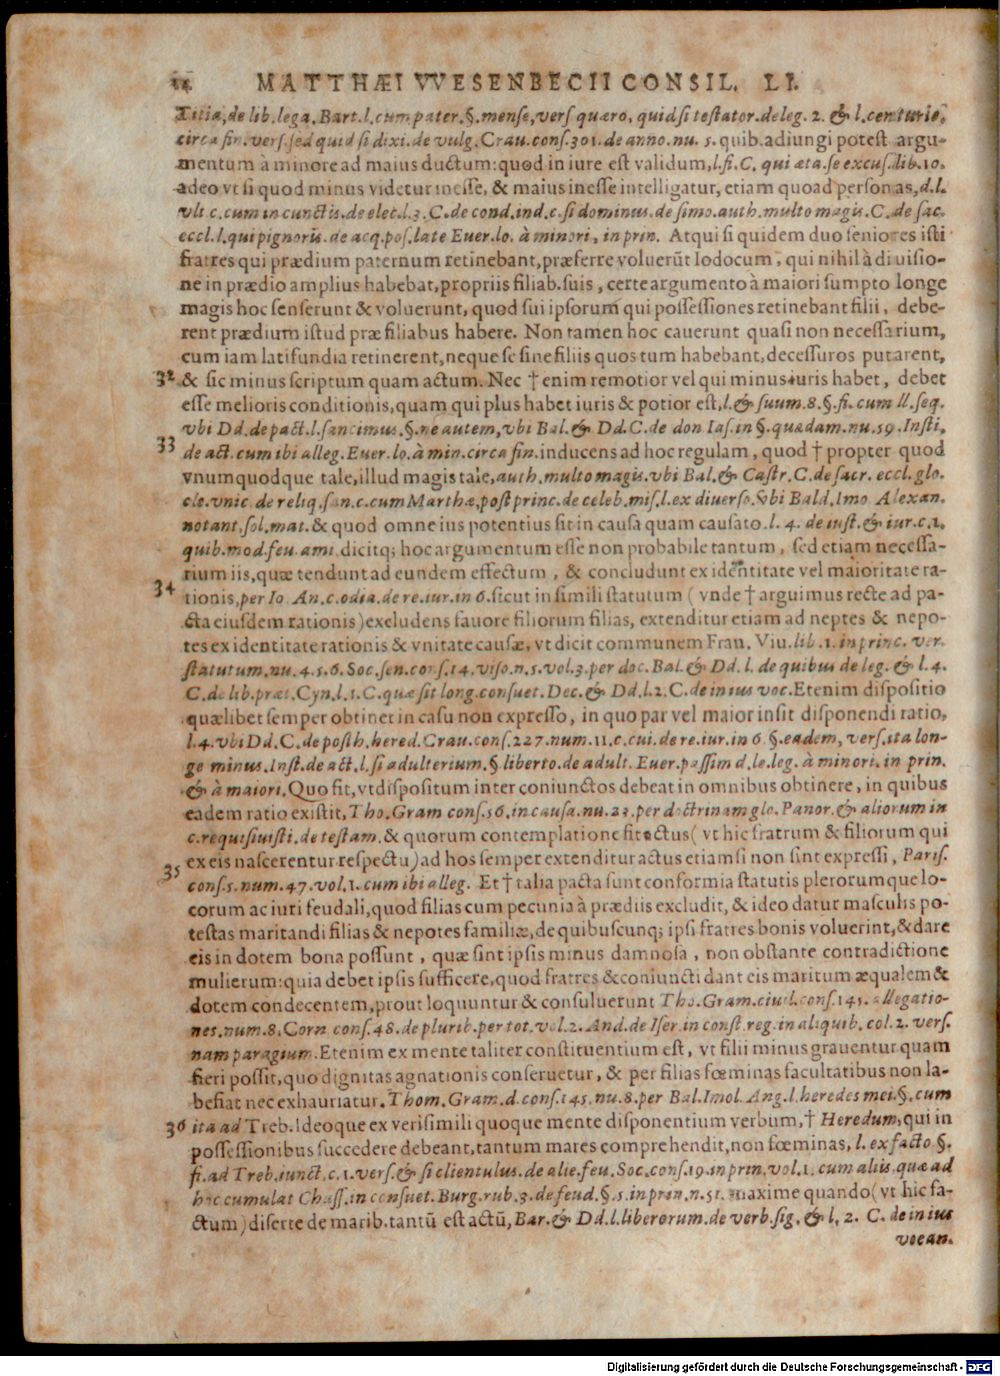 14 MATTHÆI VVESENBECII CONSIL. LI.
Titia, de lib. lega. Bart. l. cum pater. §. mensæ, vers quæro, quid si testator. de leg. 2. & l. centurio,
circa fin. vers. sed quid si dixi. de vulg. Crau. cons. 301. de anno. nu. 5. quib. adiungi potest argu-
mentum à minore ad maius ductum: quod in iure est validum, l. fi. C. qui æta. se excus. lib. 10.
adeo vt si quod minus videtur inesse, & maius inesse intelligatur, etiam quoad personas, d. l.
vlt c. cum in cunctis. de elec. l. 3. C. de cond. ind. c. si dominus. de simo. auth. multo magis. C. de sac.
eccl. l. qui pignoris. de acq. pos. late Euer. lo. à minori, in prin. Atqui si quidem duo seniores isti
fratres qui prædium paternum retinebant, præferre voluerūt Iodocum, qui nihil à diuisio-
ne in prædio amplius habebat, propriis filiab. suis, certe argumento à maiori sumpto longe
magis hoc senserunt & voluerunt, quod sui ipsorum qui possessiones retinebant filii, debe-
rent prædium istud præ filiabus habere. Non tamen hoc cauerunt quasi non necessarium,
cum iam latifundia retinerent, neque se sine filiis quos tum habebant, decessuros putarent,
32 & sic minus scriptum quam actum. Nec † enim remotior vel qui minus iuris habet, debet
esse melioris conditionis, quam qui plus habet iuris & potior est, l. & suum. 8. §. fi. cum ll. seq.
vbi Dd. de pact. l. sancimus. §. ne autem, vbi Bal. & Dd. C. de don Ias. in §. quædam. nu. 59. Insti.
33 de act. cum ibi alleg. Euer. lo. à min. circa fin. inducens ad hoc regulam, quod † propter quod
vnumquodque tale, illud magis tale, auth. multo magis. vbi Bal. & Castr. C. de sacr. eccl. glo.
cle. vnic. de reliq. san. c. cum Marthæ, post princ. de celeb. mis. l. ex diuerso. vbi Bald. Imo Alexan.
notant. sol. mat. & quod omne ius potentius sit in causa quam causato. l. 4. de iust. & iur. c. 1.
quib. mod. feu ami. dicitq; hoc argumentum esse non probabile tantum, sed etiam necessa-
rium iis, quæ tendunt ad eundem effectum, & concludunt ex identitate vel maioritate ra-
34 tionis, per Io. An. c. odia. de re. iur. in 6. sicut in simili statutum (vnde † arguimus recte ad pa-
cta eiusdem rationis) excludens fauore filiorum filias, extenditur etiam ad neptes & nepo-
tes ex identitate rationis & vnitate causæ, vt dicit communem Fran. Viu. lib. 1. in princ. ver.
statutum. nu. 4. 5. 6. Soc. sen. cons. 14. viso. n. 5. vol. 3. per doc. Bal. & Dd. l. de quibus de leg. & l. 4.
C. de lib. præt. Cyn. l. 1. C. quæ sit long. consuet. Dec. & Dd. l. 2. C. de in ius voc. Etenim dispositio
quælibet semper obtinet in casu non expresso, in quo par vel maior insit disponendi ratio,
l. 4. vbi Dd. C. de posth. hered. Crau. cons. 227. num. 11. c. cui. de re. iur. in 6 §. eadem, vers. ita lon-
ge minus. Inst. de act. l. si adulterium. §. liberto. de adult. Euer. passim d. le. leg. à minori. in prin.
& à maiori. Quo fit, vt dispositum inter coniunctos debeat in omnibus obtinere, in quibus
eadem ratio existit, Tho. Gram cons. 56. in causa. nu. 23. per doctrinam glo. Panor. & aliorum in
c. requisiuisti. de testam. & quorum contemplatione fit actus (vt hic fratrum & filiorum qui
ex eis nascerentur respectu) ad hos semper extenditur actus etiamsi non sint expressi, Paris.
35 cons. 5. num. 47. vol. 1. cum ibi alleg. Et † talia pacta sunt conformia statutis plerorumque lo-
corum ac iuri feudali, quod filias cum pecunia à prædiis excludit, & ideo datur masculis po-
testas maritandi filias & nepotes familiæ, de quibuscunq; ipsi fratres bonis voluerint, & dare
eis in dotem bona possunt, quæ sint ipsis minus damnosa, non obstante contradictione
mulierum: quia debet ipsis sufficere, quod fratres & coniuncti dant eis maritum æqualem &
dotem condecentem, prout loquuntur & consuluerunt Tho. Gram. ciuil. cons. 145. allegatio-
nes. num. 8. Corn cons. 48. de plurib. per tot. vol. 2. And. de Iser. in const. reg. in aliquib. col. 2. vers.
nam paragium. Etenim ex mente taliter constituentium est, vt filii minus grauentur quam
fieri possit, quo dignitas agnationis conseruetur, & per filias fœminas facultatibus non la-
befiat nec exhauriatur. Thom. Gram. d. cons. 145. nu. 8. per Bal. Imol. Ang. l. heredes mei. §. cum
36 ita ad Treb. Ideoque ex verisimili quoque mente disponentium verbum, † Heredum, qui in
possessionibus succedere debeant, tantum mares comprehendit, non fœminas, l. ex facto §.
fi. ad Treb. iunct. c. 1. vers. & si clientulus. de alie. feu. Soc. cons. 19. in prin. vol. 1. cum aliis quæ ad
hoc cumulat Chass. in consuet. Burg. rub. 3. de feud. §. 5. in prin. n. 51. maxime quando (vt hic fa-
ctum) diserte de marib. tantū est actū, Bar. & Dd. l. liberorum. de verb. sig. & l. 2. C. de in ius
vocan.
Digitalisierung gefördert durch die Deutsche Forschungsgemeinschaft - DFG